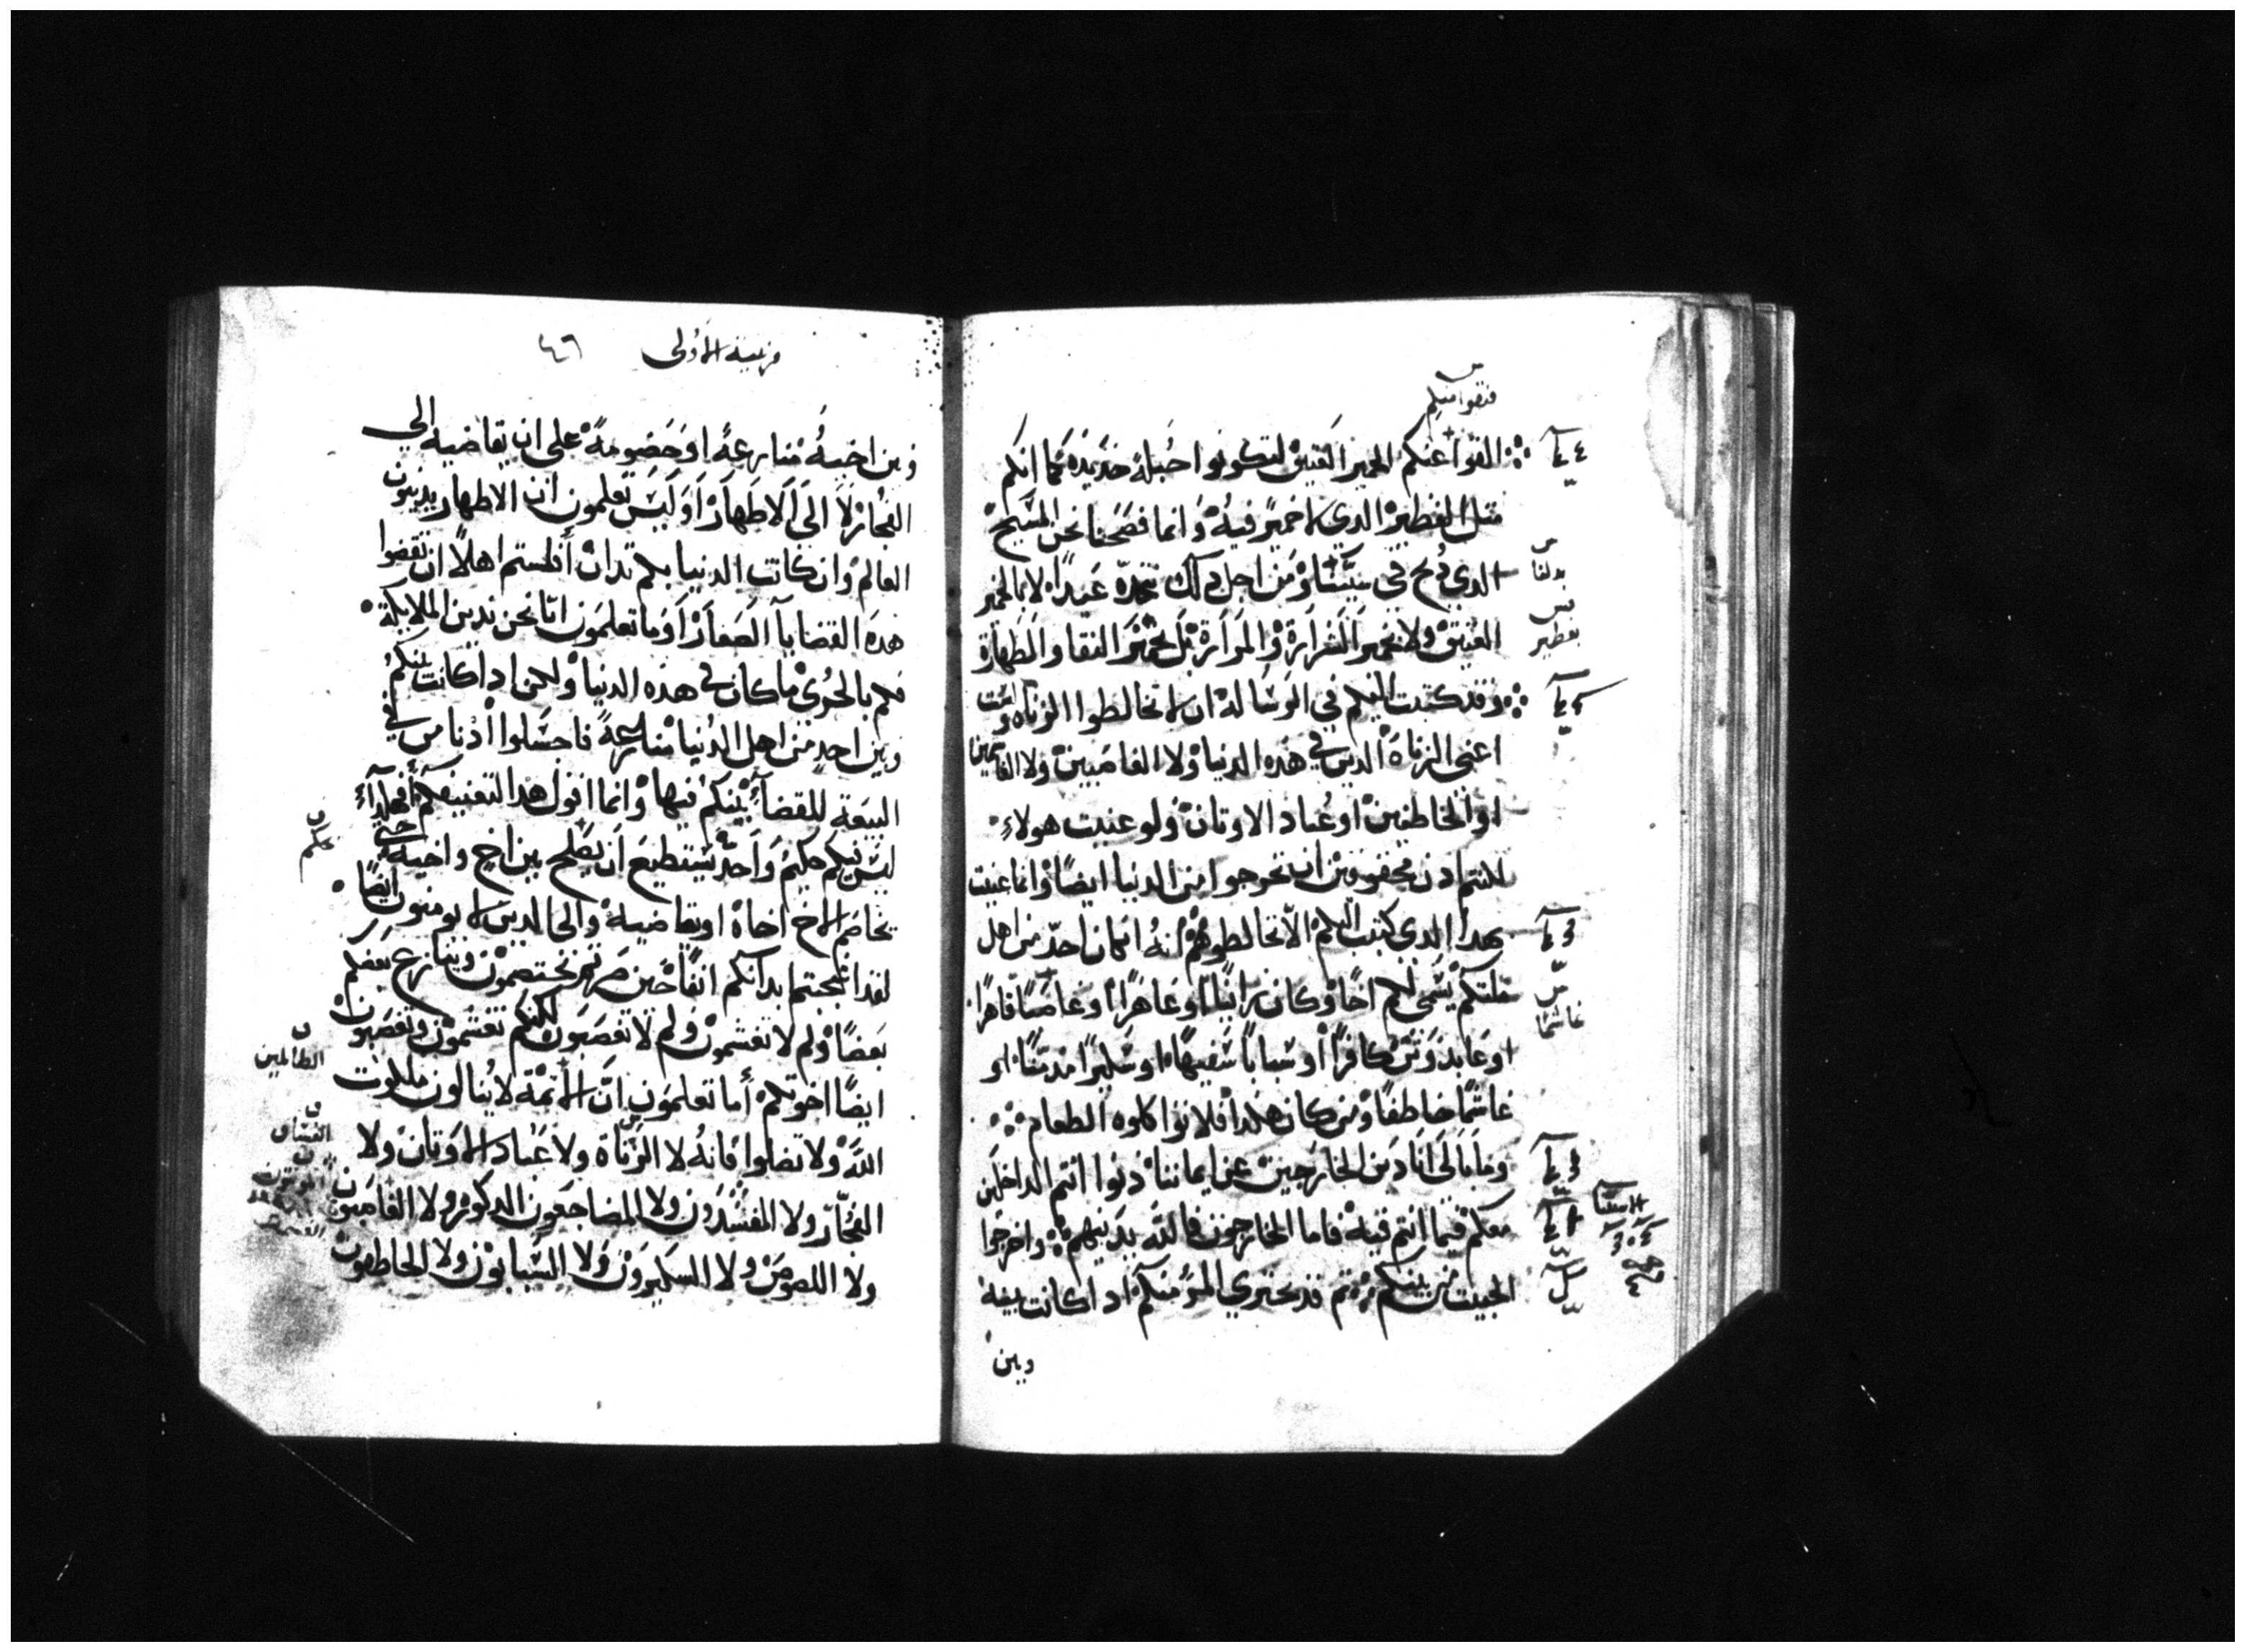 فنقوا منكم
القوا عنكم الخمير العتيق لتكونوا جبلة جديدة كما انكم
مثل الفطير الدي لا خمير فيه وانما فصحنا نحن المسيح
الدي دبح في سببنا ومن اجل دلك نتخده عيدا لا بالخمير
بدلنا
العتيق ولا بخمير الشرارة والمرارة بل بخمير النقا والطهارة
بفطير
وقد كتبت اليكم في الرسالة ان لا تخالطوا الزناه ولست
اعني الزناة الدين في هده الدنيا ولا الغاصبين ولا الغاشمين
او الخاطفين او عباد الاوتان ولو عنيت هولاء
لكنتم ادن محقوقين ان تخرجوا من الدنيا ايضا وانما عنيت
بهدا الدي كتبت اليكم الا تخالطوهم انه ان كان احد من اهل
ملتكم يسمى لكم اخا وكان زانيا او عاهرا او غاصبا قاهرا
غاشما
او عابد وتن كافرا او سبابا سفيها او سكيرا مدمنا او
غاشما خاطفا ومن كان هكدا فلا تواكلوه الطعام
وما بالى انا دين الخارجين عن ايماننا دينوا انتم الداخلين
معكم فيما انتم فيه فاما الخارجون فالله يدينهم واخرجوا
الخبيت من بينكم تم قد يجتري المرو منكم ادا كانت بينه
وبين
قرنتية الاولى ٤٦
وبين اخيه منازعة او خصومة على ان يقاضيه الي
الفجار لا الى الاطهار او ليس تعلمون ان الاطهار يدينون
العالم وان كانت الدنيا بكم تدان أفلستم اهلا ان تقضوا
هده القضايا الصغار أو ما تعلمون انا نحن ندين الملايكة
فكم بالحري ما كان في هده الدنيا ولكن ادا كانت بينكم
وبين احد من اهل الدنيا منازعة فاجسلوا أدنا من في
البيعة للقضاء بينكم فيها وانما اقول هدا لتعنيفكم أفهكدا
ليس فيكم حكيم واحد يستطيع ان يصلح بين اخ واخيه حتى
حكم
يخاصم الاخ اخاه او يقاضيه والى الدين لا يومنون ايضا
لقد انتجحتم بدانكم انفا حين صرتم تختصمون وينازع بعضكم
بعضا ولم لا تغشمون ولم لا تغصبون لكنكم تغشمون وتغصبون
الظالمين
ايضا اخوتكم أما تعلمون ان الاتمة لا ينالون ملكوت
الله ولا تضلوا فانه لا الزناة ولا عباد الاوتان ولا
الفساق
الفجار ولا المفسدون ولا المضاجعون الدكور ولا الغاصبون
ولا اللصوص ولا السكيرون ولا السبابون ولا الخاطفون